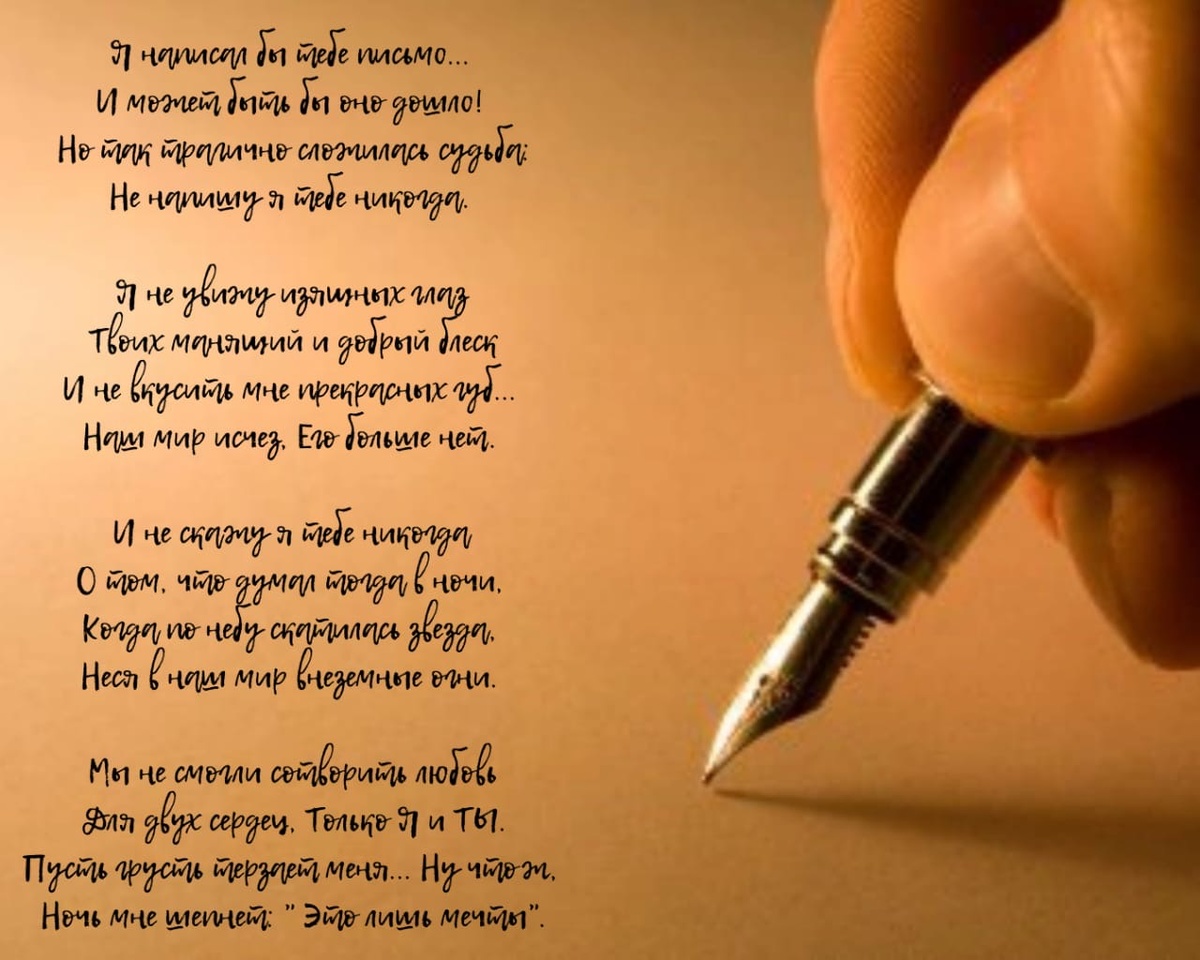 Я написал бы тебе письмо...
И может быть бы оно дошло!
Но так трагично сложилась судьба:
Не напишу я тебе никогда.
Я не увижу изящных глаз
Твоих манящий и добрый блеск
И не вкусить мне прекрасных губ...
Наш мир исчез, Его больше нет.
И не скажу я тебе никогда
О том, что думал тогда в ночи,
Когда по небу скатилась звезда,
Неся в наш мир внеземные огни.
Мы не смогли сотворить любовь
Для двух сердец, Только Я и ТЫ.
Пусть грусть терзает меня... Ну что ж,
Ночь мне шепнет: " Это лишь мечты".